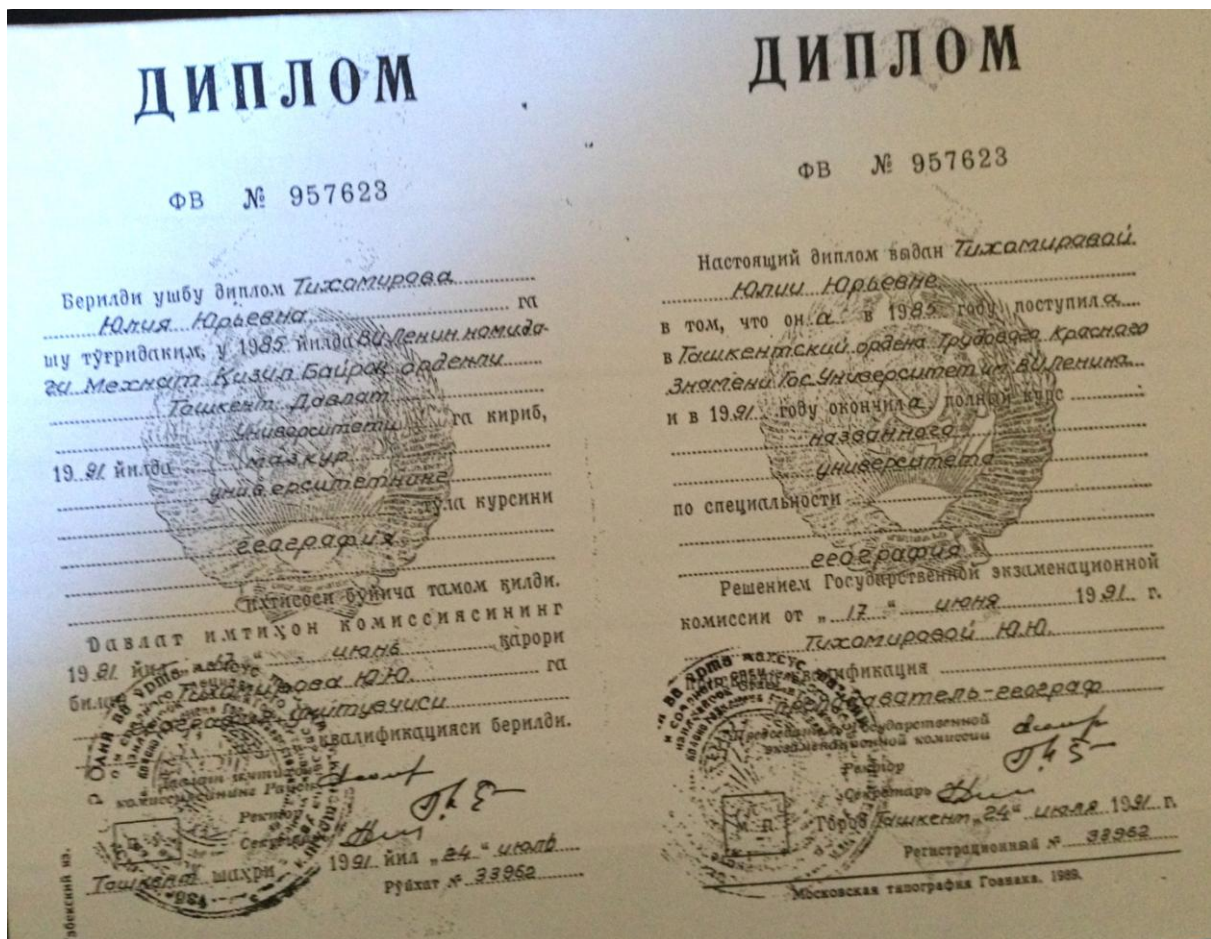 ДИПЛОМ
ФВ № 957623
Берилди ушбу диплом Тихомирова
Юлия Юрьевна га
шу тўғридаким, у 1985 йилда ВИ Ленин номида-
ги Мехнат Қизил Байроқ орденли
Тошкент Давлат
Университети га кириб,
1991 йилда мазкур
университетнинг
тўла курсини
география
ихтисоси бўйича тамом қилди.
Давлат имтиҳон комиссиясининг
1991 йил „17“ июнь қарори
билан Тихомирова Ю.Ю. га
ўқитувчиси
квалификацияси берилди.
Давлат имтиҳон
комиссиясининг Раиси
Ректор
Секретарь
Тошкент шаҳри 1991 йил „24“ июль
Рўйхат № 33962
ДИПЛОМ
ФВ № 957623
Настоящий диплом выдан Тихомировой
Юлии Юрьевне
в том, что она в 1985 году поступила
в Ташкентский ордена Трудового Красного
Знамени Гос.Университет им ВИ Ленина
и в 1991 году окончила полный курс
названного
университета
по специальности
география
Решением Государственной экзаменационной
комиссии от „17“ июня 1991 г.
Тихомировой Ю.Ю.
квалификация
преподаватель-географ
Председатель Государственной
экзаменационной комиссии
Ректор
Секретарь
М П
Город Ташкент „24“ июля 1991 г.
Регистрационный № 33962
Московская типография Гознака. 1989.